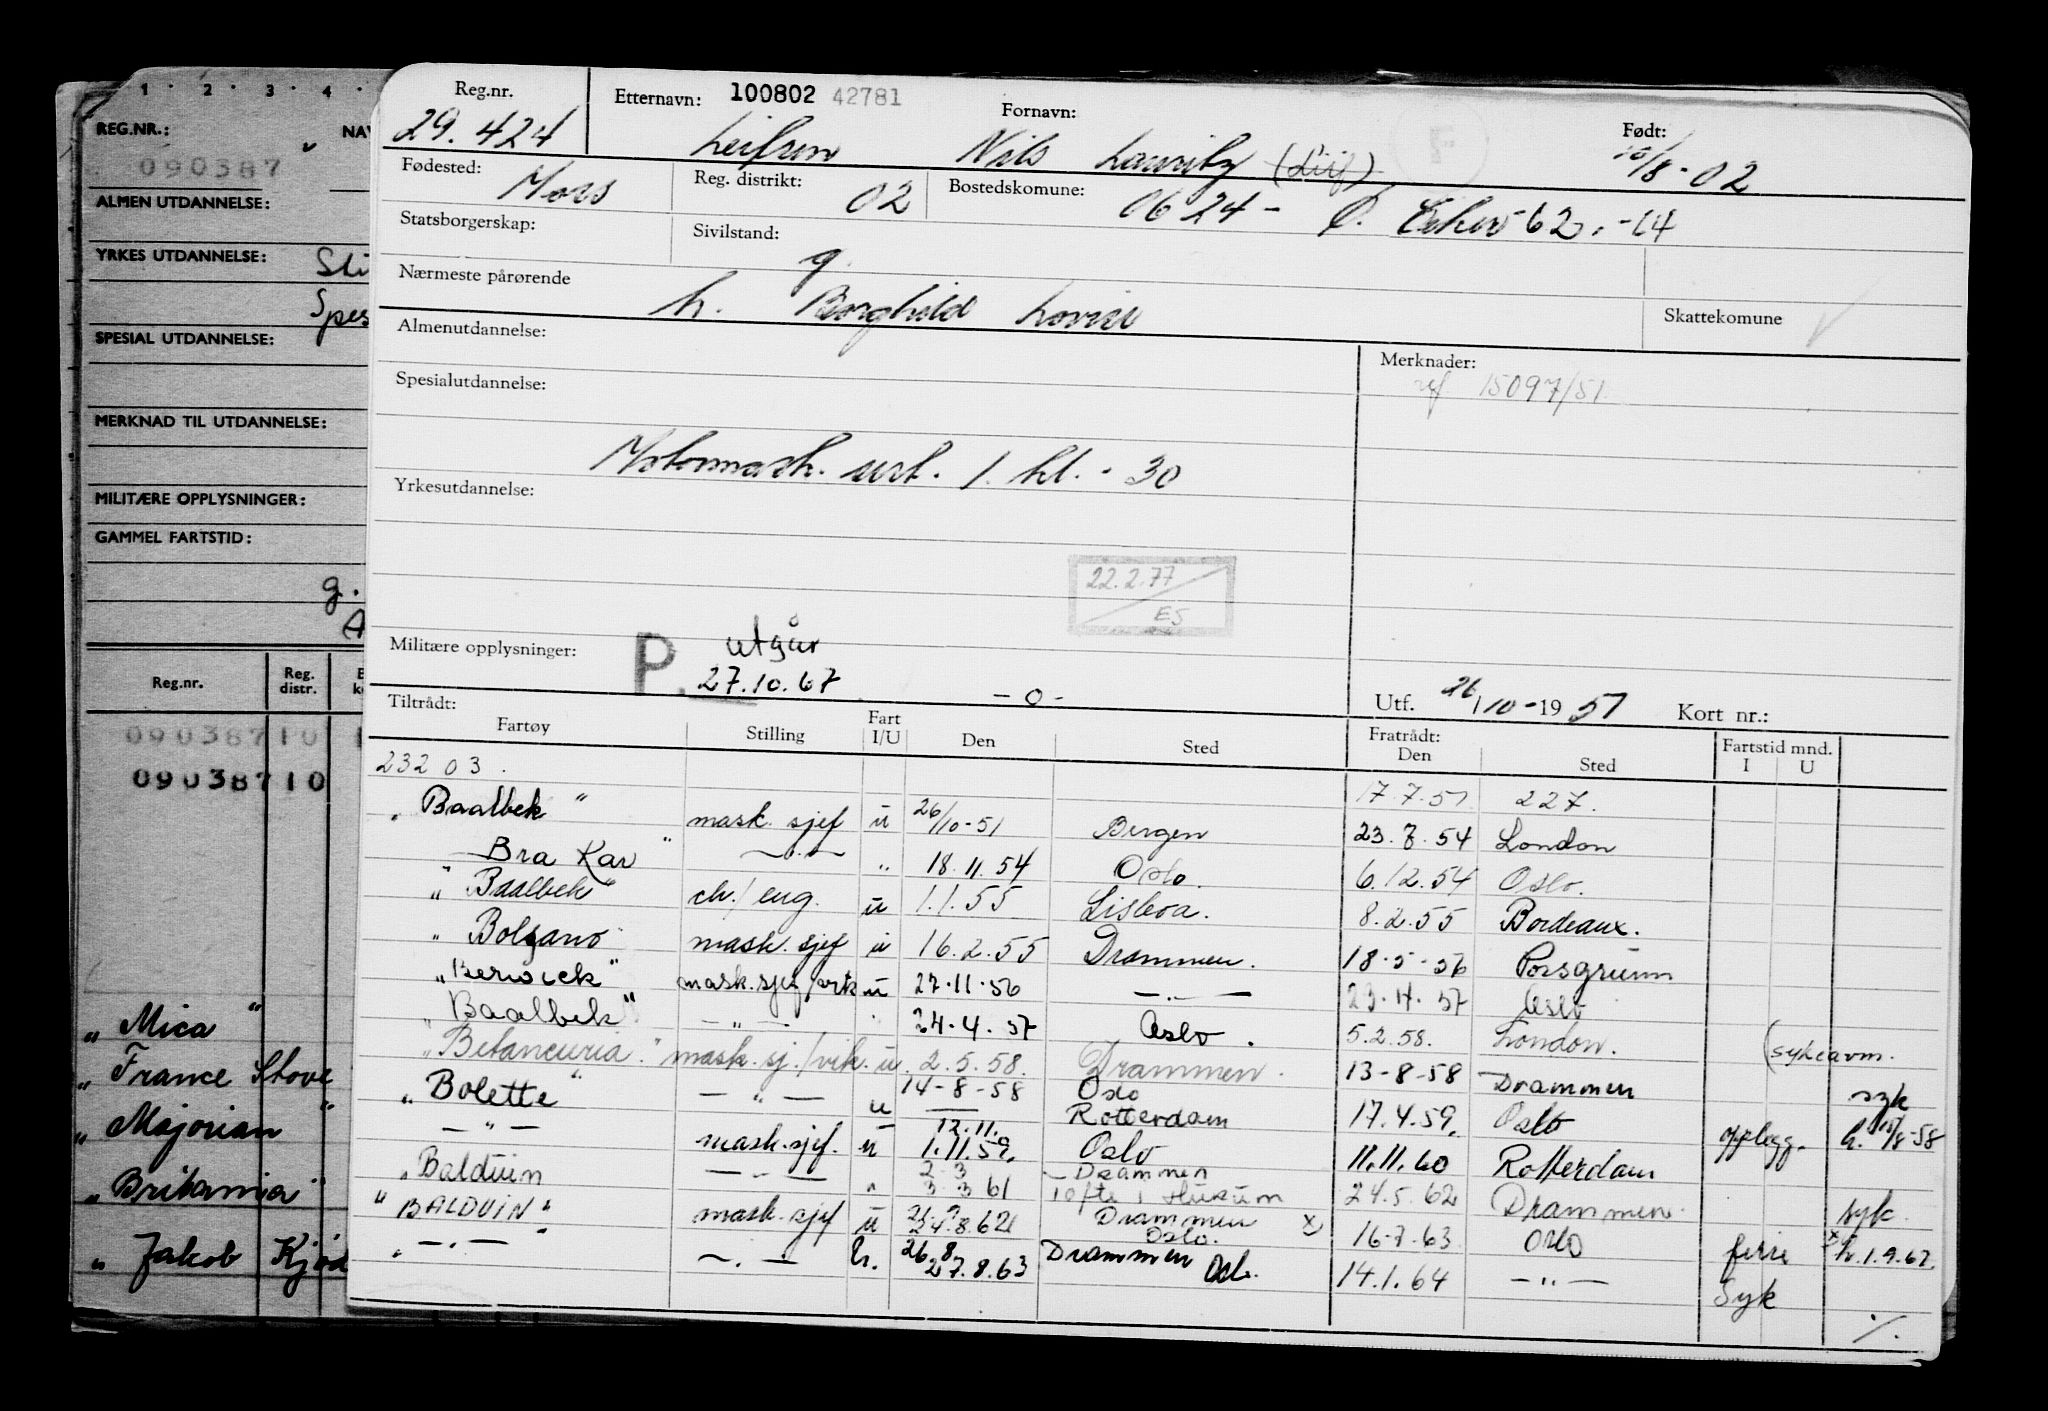 1 2 3 4
REG.NR.: NAV
090387
ALMEN UTDANNELSE:
YRKES UTDANNELSE:
Spes
SPESIAL UTDANNELSE:
MERKNAD TIL UTDANNELSE:
MILITÆRE OPPLYSNINGER:
GAMMEL FARTSTID:
g.
A
Reg.nr. Reg. distr.
09038710
09038710
„ Mica “
„ France Stove
„ Majorian “
„ Britannia “
„ Jakob Kjød
Reg.nr. Etternavn: 100802 42781 Fornavn: Født:
29.424 Leifsen Nils Lauritz (Liif) 10/8-02
Fødested: Moss Reg. distrikt: 02 Bostedskomune: 0624 - Ø. Eiker 62.-14
Statsborgerskap: Sivilstand: g.
Nærmeste pårørende h. Borghild Lovise Skattekomune
Almenutdannelse: Merknader:
Spesialutdannelse: ref. 15097/51
Motormask. sert. 1. kl. - 30
Yrkesutdannelse:
22.2.77
ES
Militære opplysninger: P. utgår
27.10.67 - o - Utf. 26/10-1951 Kort nr.:
Tiltrådt: Fratrådt: Fartstid mnd.
Fartøy Stilling Fart I/U Den Sted Den Sted I U
23203. 17.7.51 227.
„ Baalbek “ mask. sjef u 26/10-51 Bergen 23.7.54 London
Bra Kar “ — “ — “ 18.11.54 Oslo. 6.12.54 Oslo.
„ Baalbek “ ch./eng. u 1.1.55 Lisboa. 8.2.55 Bordeaux.
„ Bolzano “ mask. sjef u 16.2.55 Drammen. 18-5-56 Porsgrunn
„ Berwick “ mask.sjef/vik u 27.11.56 — “ — 23.4.57 Oslo
„ Baalbek “ — “ — 24.4.57 Oslo. 5.2.58. London. (sykeavm.
„ Betancuria. “ mask.sj./vik. u. 2.5.58. Drammen. 13-8-58 Drammen syk
„ Bolette “ — “ — u 14-8-58 Oslo 17.4.59. Oslo opplegg. h. 15/8-58
— “ — mask.sjef. u 12.11. 1.11.59. Rotterdam Oslo 11.11.60 Rotterdam
„ Balduin — “ — “ 2.3 3.3 61 Drammen Tofte i Hurum 24.5.62 Drammen. syk.
“ BALDUIN “ mask.sjef u 21.7 24.8.62 Drammen Oslo. x) 16-7.63 Oslo ferie x h.1.9.62.
„ — “ — — “ — h. 26.8 27.8.63 Drammen Oslo. 14.1.64 — “ — Syk
%.